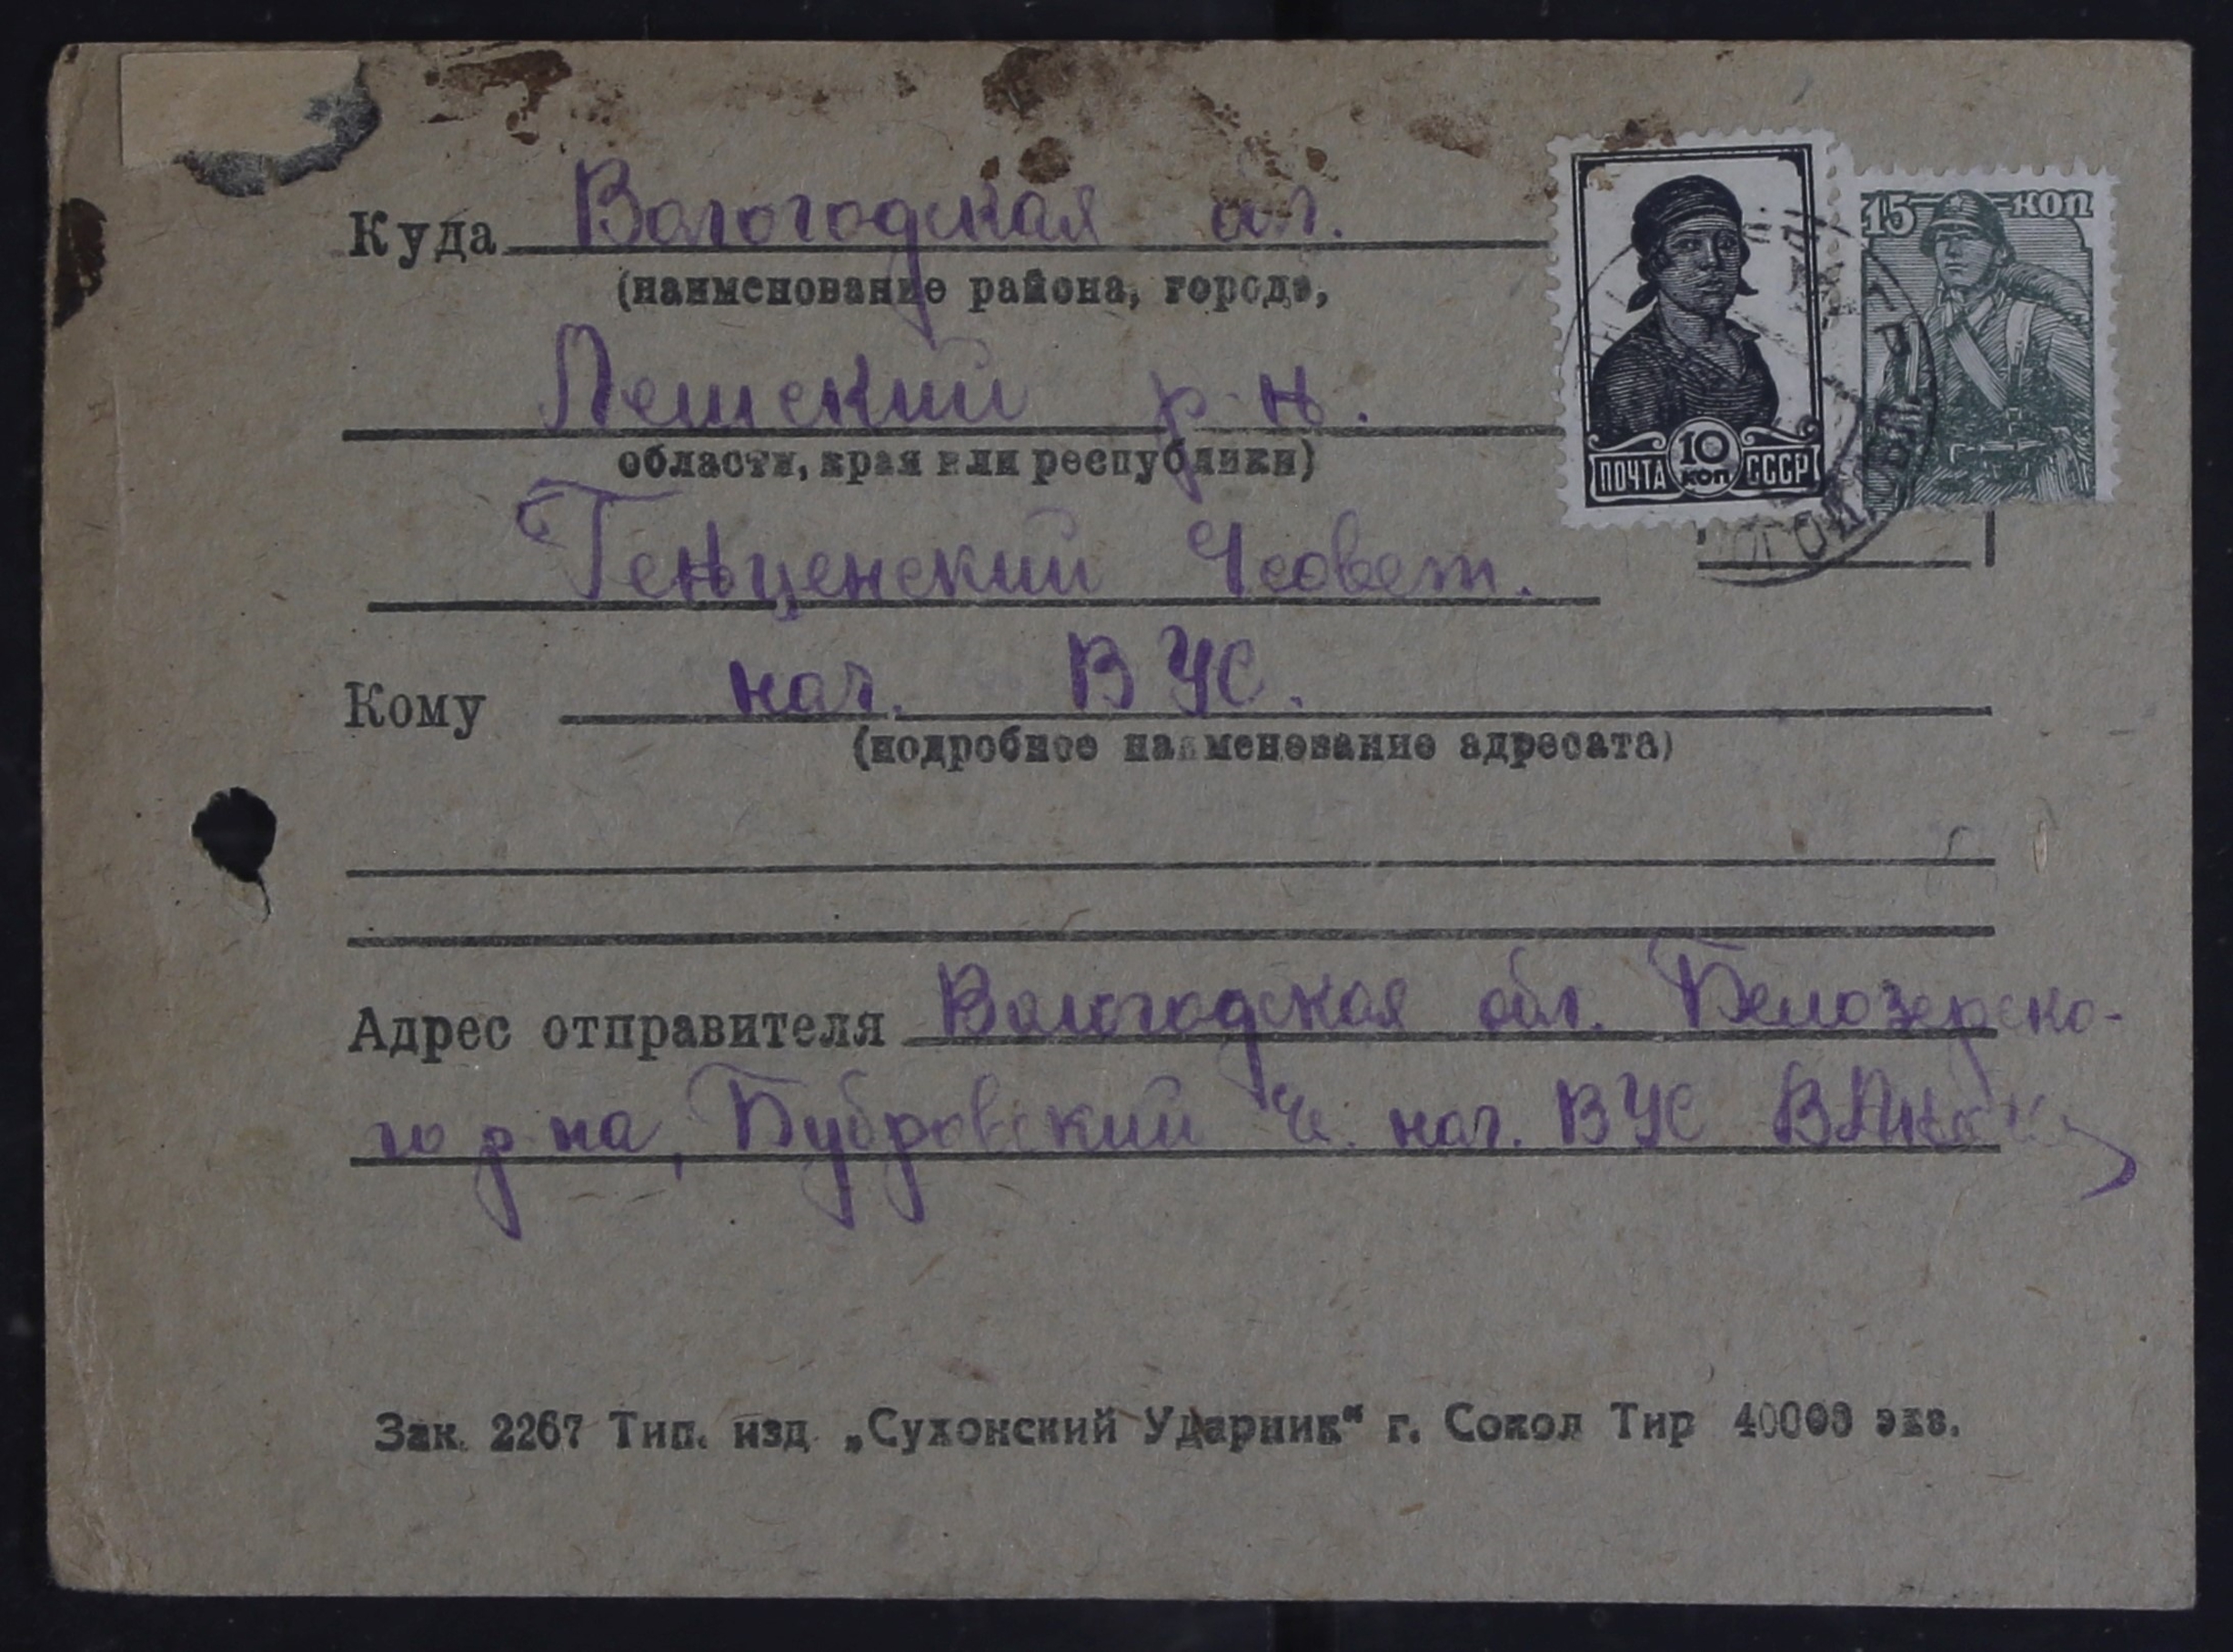 15 коп
Куда Вологодская ол.
(наименование района, города,
Лешский р-н.
области, края или республики)
ПОЧТА 10 КОП СССР
Генценский Чсовет.
Кому нач. ВУС.
(подробное наименование адресата)
Адрес отправителя Вологодская обл. Белозерско-
го р-на, Бубровский нач. ВУС
Зак. 2267 Тип. изд „Сухонский Ударник“ г. Сокол Тир 40000 экз.